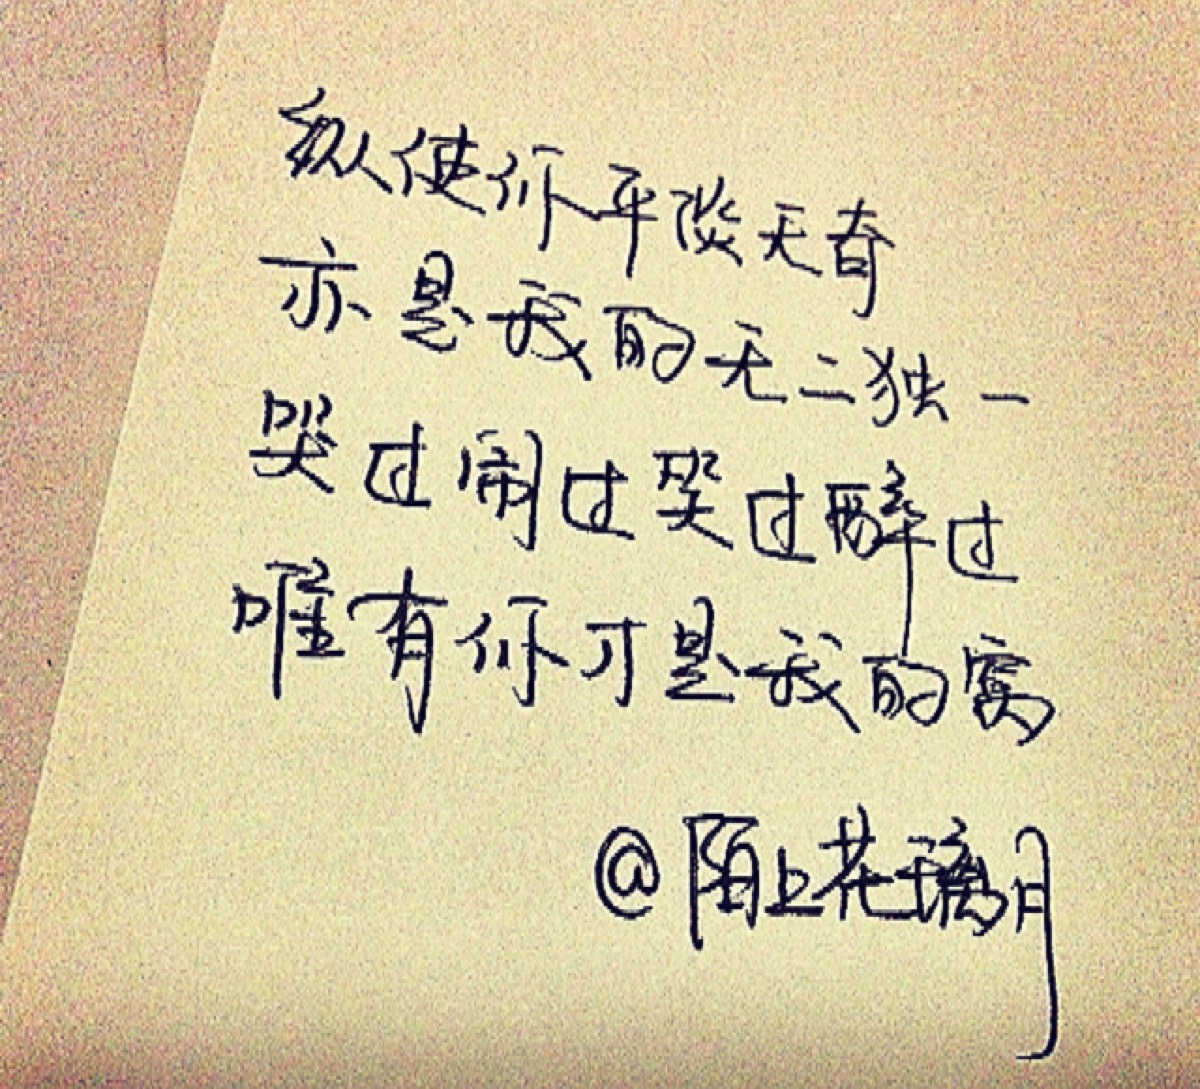 纵使你平淡无奇
亦是我的无二独一
哭过闹过哭过醉过
唯有你才是我的窝
@陌上花璃月